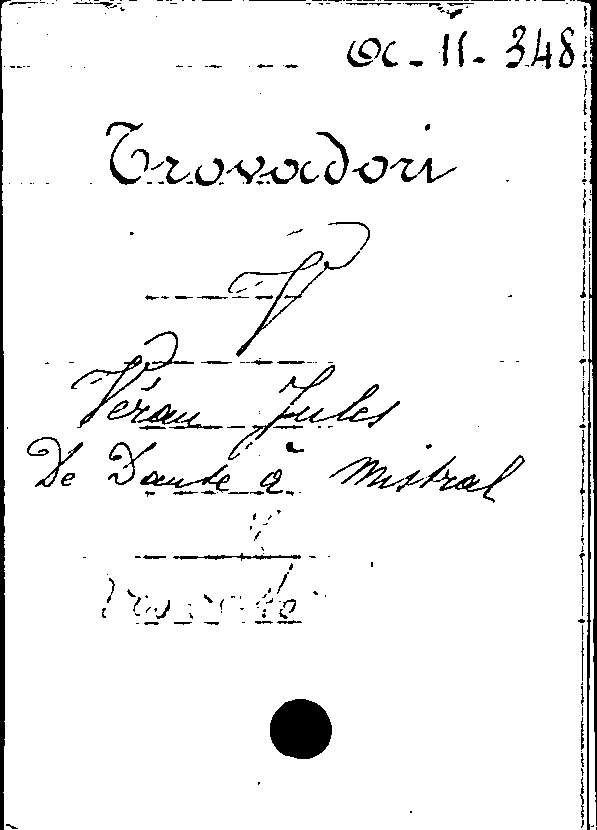 Oc-11-348
Trovadori
V
Véran Jules
De Dante à Mistral